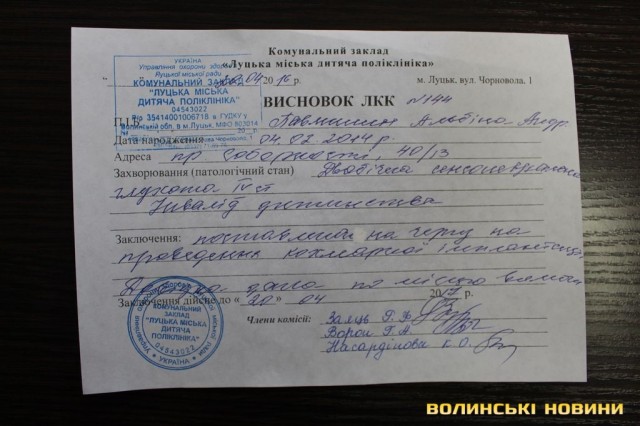 УКРАЇНА
Управління охорони здоров'я
Луцької міської ради
КОМУНАЛЬНИЙ ЗАКЛАД
"ЛУЦЬКА МІСЬКА
ДИТЯЧА ПОЛІКЛІНІКА"
04543022
Р/р 35414001006718 в ГУДКУ у
Волинській обл. в м.Луцьк, МФО 803014
Комунальний заклад
«Луцька міська дитяча поліклініка»
04 2016 г.
м. Луцьк, вул. Чорновола, 1
ВИСНОВОК ЛКК №144
П.І.Б. Альбіна Андр.
Дата народження 04.02.2014р.
Адреса пр Соборності, 40/13
Захворювання (патологічний стан) Двобічна сенсоневральна
глухота IV ст
Інвалід дитинства
Заключення: поставлена на чергу на
проведення кохлеарної імплантації
дана по місцю вимоги
Заключення дійсне до « 20 » 04 20 р.
Члени комісії: Заяць Г.Ф.
Ворон Г.А.
К.О.
КОМУНАЛЬНИЙ
ЗАКЛАД
"ЛУЦЬКА МІСЬКА
ДИТЯЧА
ПОЛІКЛІНІКА"
04543022
* УКРАЇНА *
ВОЛИНСЬКІ НОВИНИ